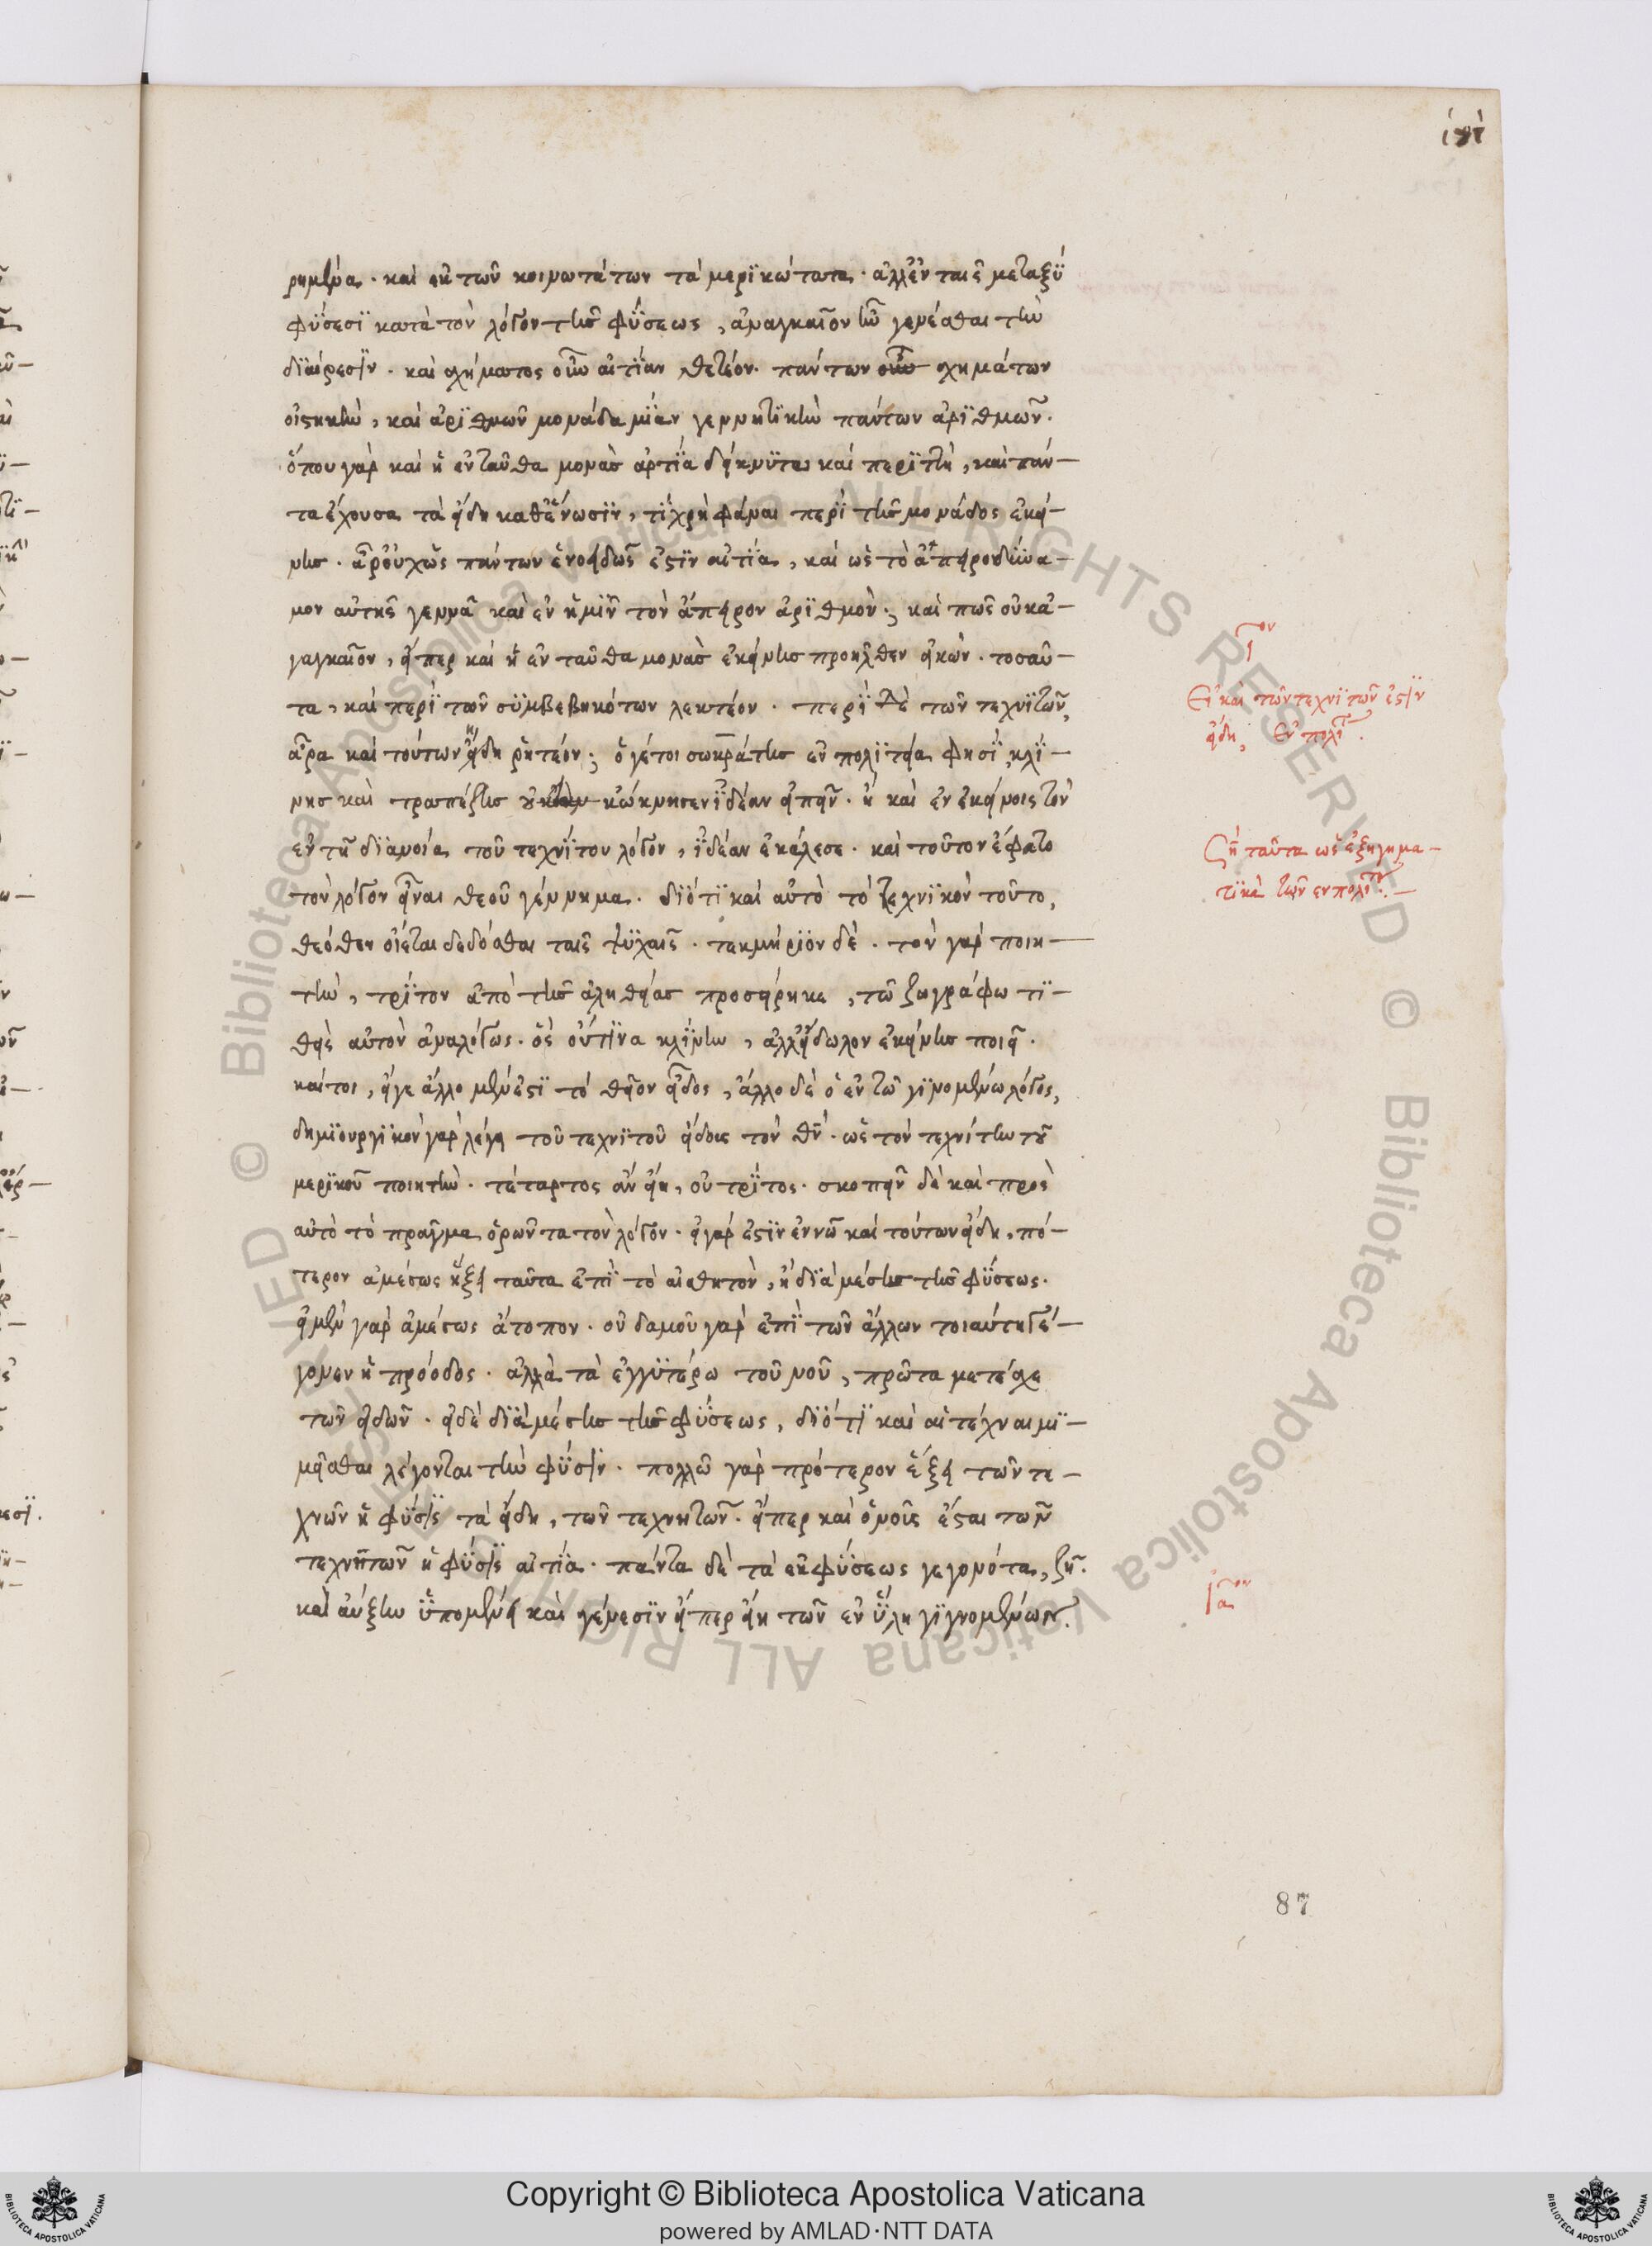 ρημένα. καὶ ἐκ τῶν κοινωτάτων τὰ μερϊκώτατα. ἀλλ' ἐν ταῖς μεταξὺ
φύσεσϊ κατὰ τὸν λόγον τῆς φύσεως, ἀναγκαῖον ἦν γενέσθαι τὴν
διαίρεσϊν. καὶ σχήματος οὖν αἰτίαν θετέον. πάντων σχημάτων
οἰστικὴν, καὶ ἀρϊθμῶν μονάδα μίαν γεννητϊκὴν πάντων ἀρϊθμῶν.
ὅπου γὰρ καὶ ἡ ἐνταῦθα μονὰς ἀρτία δείκνυται καὶ περϊττὴ, καὶ πάν-
τα ἔχουσα τὰ εἴδη καθ' ἕνωσϊν, τί χρὴ φάναι περὶ τῆς μονάδος ἐκεί-
νης. ἆρ' οὐχ ὡς πάντων ἑνοειδῶς ἐστϊν αἰτία, καὶ ὡς τὸ ἀπειροδύνα-
μον αὐτῆς γεννᾷ καὶ ἐν ἡμῖν τὸν ἄπειρον ἀρϊθμόν; καὶ πῶς οὐκ ἀ-
ναγκαῖον, εἴπερ καὶ ἡ ἐνταῦθα μονὰς ἐκείνης προῆλθεν εἰκών. τοσαῦ-
τα, καὶ περὶ τῶν συμβεβηκότων λεκτέον. περὶ δὲ τῶν τεχνϊτῶν,
ἆρα καὶ τούτων εἴδη ῥητέον; ὅ γέ τοι σωκράτης ἐν πολϊτεία φησὶ, κλί-
νης καὶ τραπέζης οὐκ ὤκνησεν ἰδέαν εἰπεῖν. ἢ καὶ ἐν ἐκείνοις τὸν
ἐν τῆ διανοία τοῦ τεχνίτου λόγον, ἰδέαν ἐκάλεσε. καὶ τοῦτον ἔφατο
τὸν λόγον εἶναι θεοῦ γέννημα. διότϊ καὶ αὐτὸ τὸ τεχνϊκὸν τοῦτο,
θεόθεν οἴεται δεδόσθαι ταῖς ψυχαῖς. τεκμήριον δὲ. τὸν γὰρ ποιη-
τὴν, τρίτον ἀπὸ τῆς ἀληθείας προσείρηκε, τῶ ζωγράφω τϊ-
θεὶς αὐτὸν ἀναλόγως. ὃς οὔτϊνα κλίνην, ἀλλ' εἴδωλον ἐκείνης ποιεῖ.
καίτοι, εἴγε ἄλλο μέν ἐστϊ τὸ θεῖον εἶδος, ἄλλο δὲ ὁ ἐν τῶ γϊνομένω λόγος,
δημϊουργϊκὸν γὰρ λέγει τοῦ τεχνϊτοῦ εἴδους τὸν θν̄. ὡς τὸν τεχνίτην τοῦ
μερϊκοῦ ποιητὴν. τέταρτος ἂν εἴη, οὐ τρίτος. σκοπεῖν δὲ καὶ πρὸς
αὐτὸ τὸ πρᾶγμα ὁρῶντα τὸν λόγον. εἰ γάρ ἐστϊν ἐν νῶ καὶ τούτων εἴδη, πό-
τερον ἀμέσως ἥξει ταῦτα ἐπὶ τὸ αἰσθητὸν, ἢ διὰ μέσης τῆς φύσεως.
εἰ μὲν γὰρ ἀμέσως ἄτοπον. οὐδαμοῦ γὰρ ἐπὶ τῶν ἄλλων τοιαύτη γέ-
γονεν ἡ πρόοδος. ἀλλὰ τὰ ἐγγυτέρω τοῦ νοῦ, πρῶτα μετέχει
τῶν εἰδῶν. εἰ δὲ διὰ μέσης τῆς φύσεως, διότϊ καὶ αἱ τέχναι μϊ-
μεῖσθαι λέγονται τὴν φύσϊν. πολλῶ γὰρ πρότερον ἕξει τῶν τε-
χνῶν ἡ φύσϊς τὰ εἴδη, τῶν τεχνητῶν. εἴπερ καὶ ὁμοῖς ἔσται τῶν
τεχνητῶν ἡ φύσϊς αἰτία. πάντα δὲ τὰ ἐκ φύσεως γεγονότα, ζῆ.
καὶ αὔξην ὑπομένει καὶ γένεσϊν εἴπερ εἴη τῶν ἐν ὕλη γϊγνομένων.
ι̅ον
Εἰ καὶ τῶν τεχνϊτῶν ἐστϊν
εἴδη, Ἐν πολϊ.
Ση ταῦτα ὡς ἐξηγημα-
τϊκὰ τῶν ἐν πολϊτ.
ια̅ον
87
Copyright © Biblioteca Apostolica Vaticana
powered by AMLAD·NTT DATA